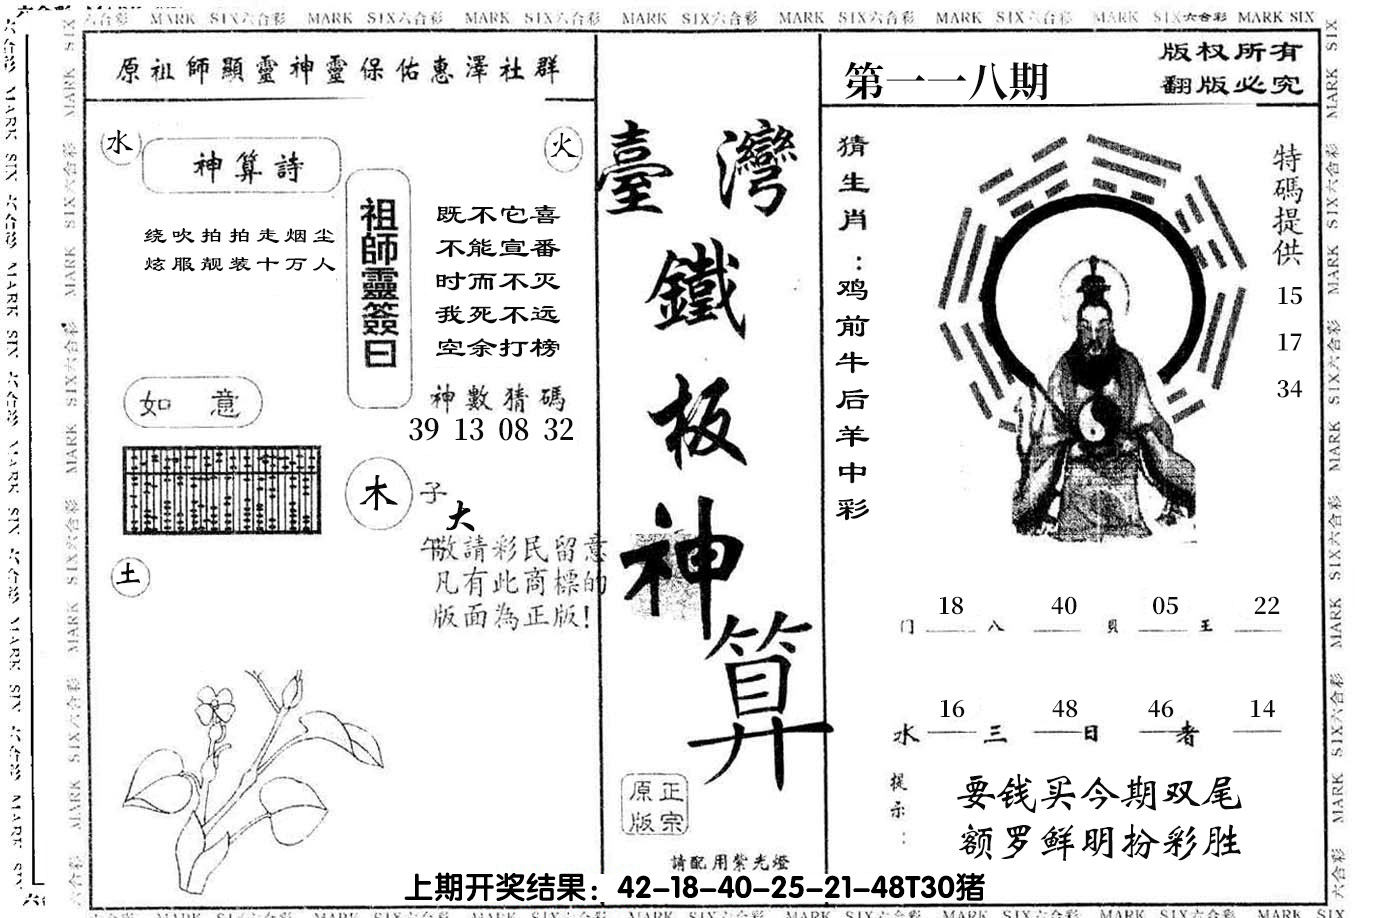 MARK SIX六合彩 MARK SIX六合彩 MARK SIX六合彩 MARK SIX六合彩 MARK SIX六合彩 MARK SIX六合彩 MARK SIX六合彩 MARK SIX
原祖師顯靈神靈保佑惠澤社群
水
神算詩
火
绕吹拍拍走烟尘
炫服靓装十万人
祖師靈簽曰
既不它喜
不能宣番
时而不灭
我死不远
空余打榜
神數猜碼
39 13 08 32
如 意
木
子
大
午
敬請彩民留意
凡有此商標的
版面為正版!
土
臺灣
鐵
板
神
算
正宗
原版
請配用紫光燈
第一一八期
版权所有
翻版必究
猜生肖:鸡前牛后羊中彩
特碼提供
15
17
34
18 40 05 22
门 八 貝 王
16 48 46 14
水 三 日 者
提示:
要钱买今期双尾
额罗鲜明扮彩胜
上期开奖结果:42-18-40-25-21-48T30猪